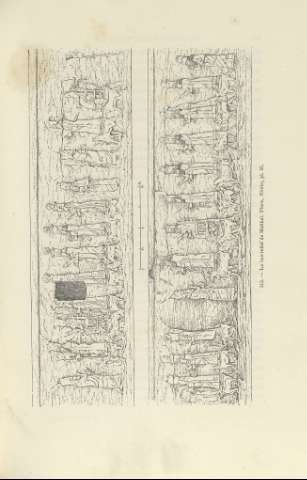 313. — Le bas-relief de Malthaï. Place, Ninive, pl. 45.